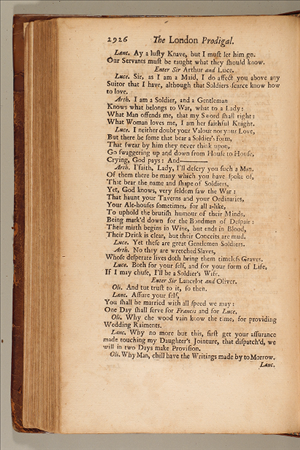 2926 The London Prodigal.
Lanc. Ay a lusty Knave, but I must let him go.
Our Servants must be taught what they should know.
Enter Sir Arthur and Luce.
Luce. Sir, as I am a Maid, I do affect you above any
Suitor that I have, although that Soldiers scarce know how
to love.
Arth. I am a Soldier, and a Gentleman
Knows what belongs to War, what to a Lady:
What Man offends me, that my Sword shall right:
What Woman loves me, I am her faithful Knight.
Luce. I neither doubt your Valour nor your Love,
But there be some that bear a Soldier's form,
That swear by him they never think upon,
Go swaggering up and down from House to House,
Crying, God pays: And———
Arth. I'faith, Lady, I'll descry you such a Man,
Of them there be many which you have spoke of,
That bear the name and shape of Soldiers,
Yet, God knows, very seldom saw the War:
That haunt your Taverns and your Ordinaries,
Your Ale-houses sometimes, for all a-like,
To uphold the brutish humour of their Minds,
Being mark'd down for the Bondmen of Despair:
Their mirth begins in Wine, but ends in Blood,
Their Drink is clear, but their Conceits are mud.
Luce. Yet these are great Gentlemen Soldiers.
Arth. No they are wretched Slaves,
Whose desperate lives doth bring them timeless Graves.
Luce. Both for your self, and for your form of Life,
If I may chuse, I'll be a Soldier's Wife.
Enter Sir Lancelot and Oliver.
Oli. And tut trust to it, so then.
Lanc. Assure your self,
You shall be married with all speed we may:
One Day shall serve for Francis and for Luce.
Oli. Why che wood vain know the time, for providing
Wedding Raiments.
Lanc. Why no more but this, first get your assurance
made touching my Daughter's Jointure, that dispatch'd, we
will in two Days make Provision.
Oli. Why Man, chill have the Writings made by to Morrow.
Lanc.